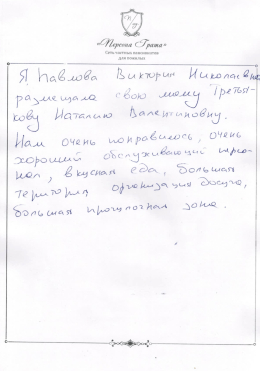 «Персона Грата»
Сеть частных пансионатов
для пожилых
Я Павлова Виктория Николаевна
размещала свою маму Третья-
кову Наталию Валентиновну.
Нам очень понравилось, очень
хороший обслуживающий персо-
нал, вкусная еда, большая
територия организация досуга,
большая прогулочная зона.